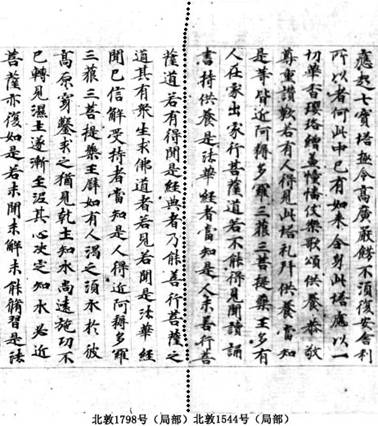 應起七寶塔極令高廣嚴飾不須復安舍利
所以者何此中已有如來全身此塔應以一
切華香瓔珞繒蓋幢幡伎樂歌頌供養恭敬
尊重讚歎若有人得見此塔礼拜供養當知
是等皆近阿耨多羅三藐三菩提藥王多有
人在家出家行菩薩道若不能得見聞讀誦
書持供養是法華經者當知是人未善行菩
薩道若有得聞是經典者乃能善行菩薩之
道其有衆生求佛道者若見若聞是法華經
聞已信解受持者當知是人得近阿耨多羅
三藐三菩提藥王譬如有人渴乏須水於彼
高原穿鑿求之猶見乾土知水尚遠施功不
已轉見濕土遂漸至泥其心決定知水必近
菩薩亦復如是若未聞未解未能脩習是法
北敦1798号（局部）北敦1544号（局部）